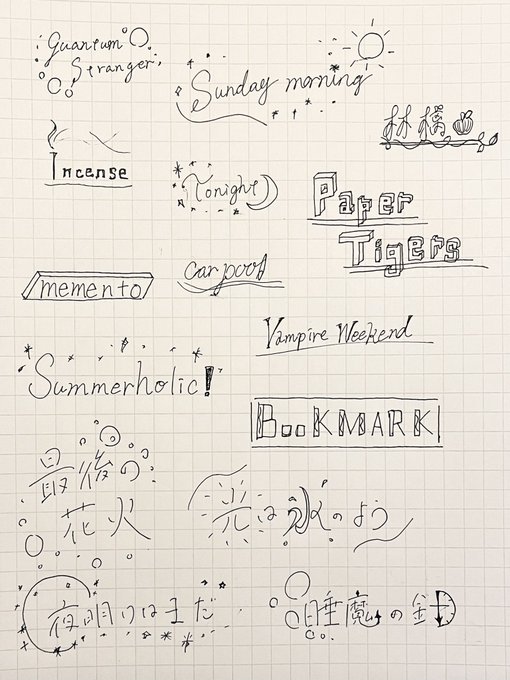 Quantum
Stranger
Sunday morning
林檎
Incense
Tonight
Paper
Tigers
carpool
memento
Vampire Weekend
Summerholic!
BooKMARK
最後の
花火
光は水のよう
夜明けはまだ
睡魔の針